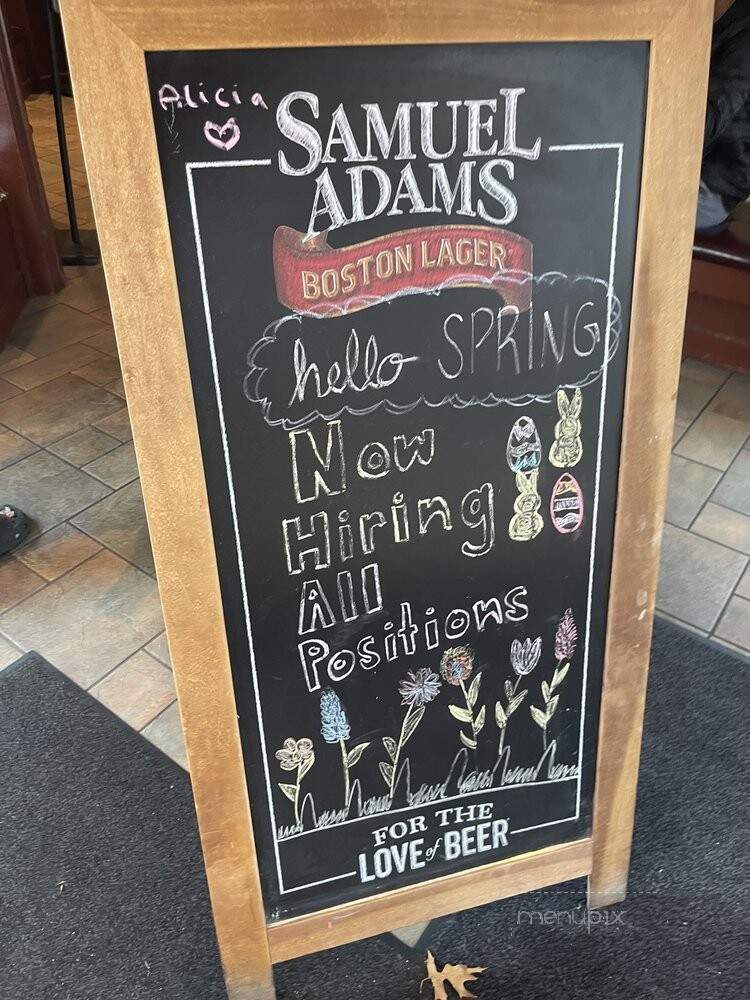 Alicia
SAMUEL
ADAMS
BOSTON LAGER
hello SPRING
Now
Hiring
All
Positions
FOR THE
LOVE of BEER
menupix